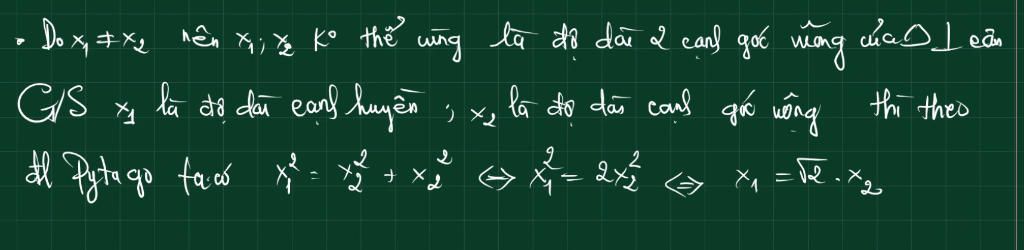 • Do x₁ ≠ x₂ nên x₁; x₂ K° thể cùng là độ dài 2 cạnh góc vuông của △⊥ cân
G/S x₁ là độ dài cạnh huyền; x₂ là độ dài cạnh góc vuông thì theo
đl Pytago ta có x₁² = x₂² + x₂² ⇔ x₁² = 2x₂² ⇔ x₁ = √2 . x₂